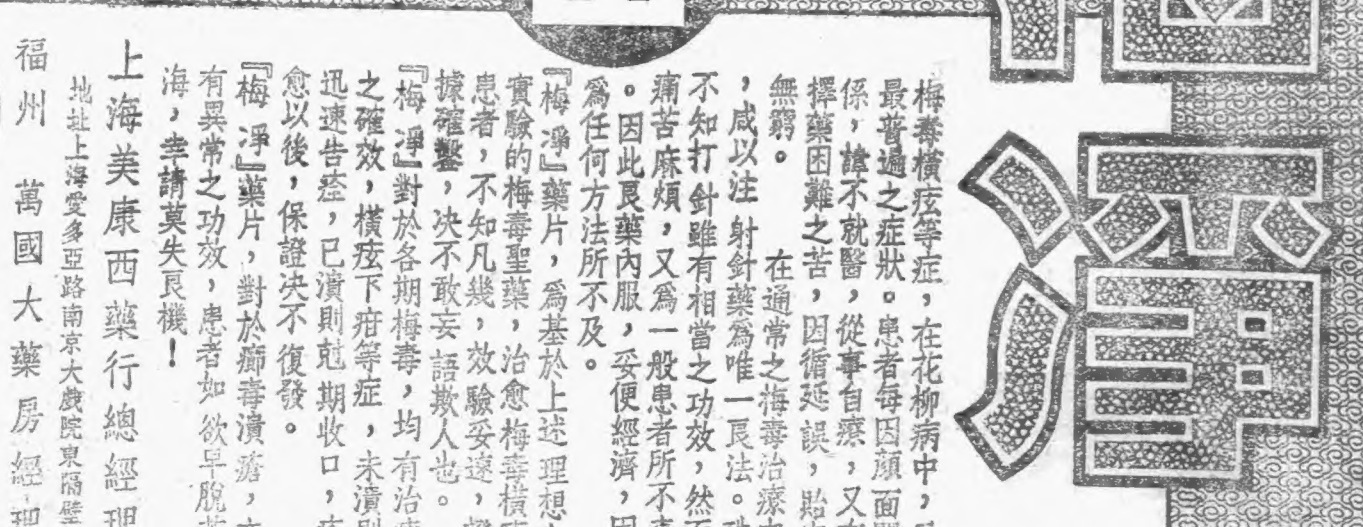 淨
梅毒橫痃等症，在花柳病中，
最普遍之症狀。患者每因顏面
係，諱不就醫，從事自療，又
擇藥困難之苦，因循延誤，貽
無窮。　在通常之梅毒治療
，咸以注射針藥爲唯一良法。
不知打針雖有相當之功效，然
痛苦麻煩，又爲一般患者所不
。因此良藥內服，妥便經濟，
爲任何方法所不及。
『梅淨』藥片，爲基於上述理想
實驗的梅毒聖藥，治愈梅毒橫
患者，不知凡幾，效驗妥速，
據確鑿，决不敢妄語欺人也。
『梅淨』對於各期梅毒，均有治
之確效，橫痃下疳等症，未潰
迅速告痊，已潰則尅期收口，
愈以後，保證决不復發。
『梅淨』藥片，對於癤毒潰瘡，
有異常之功效，患者如欲早脫
海，幸請莫失良機！
上海美康西藥行總經理
地址上海愛多亞路南京大戲院東隔壁
福州　萬國大藥房經理